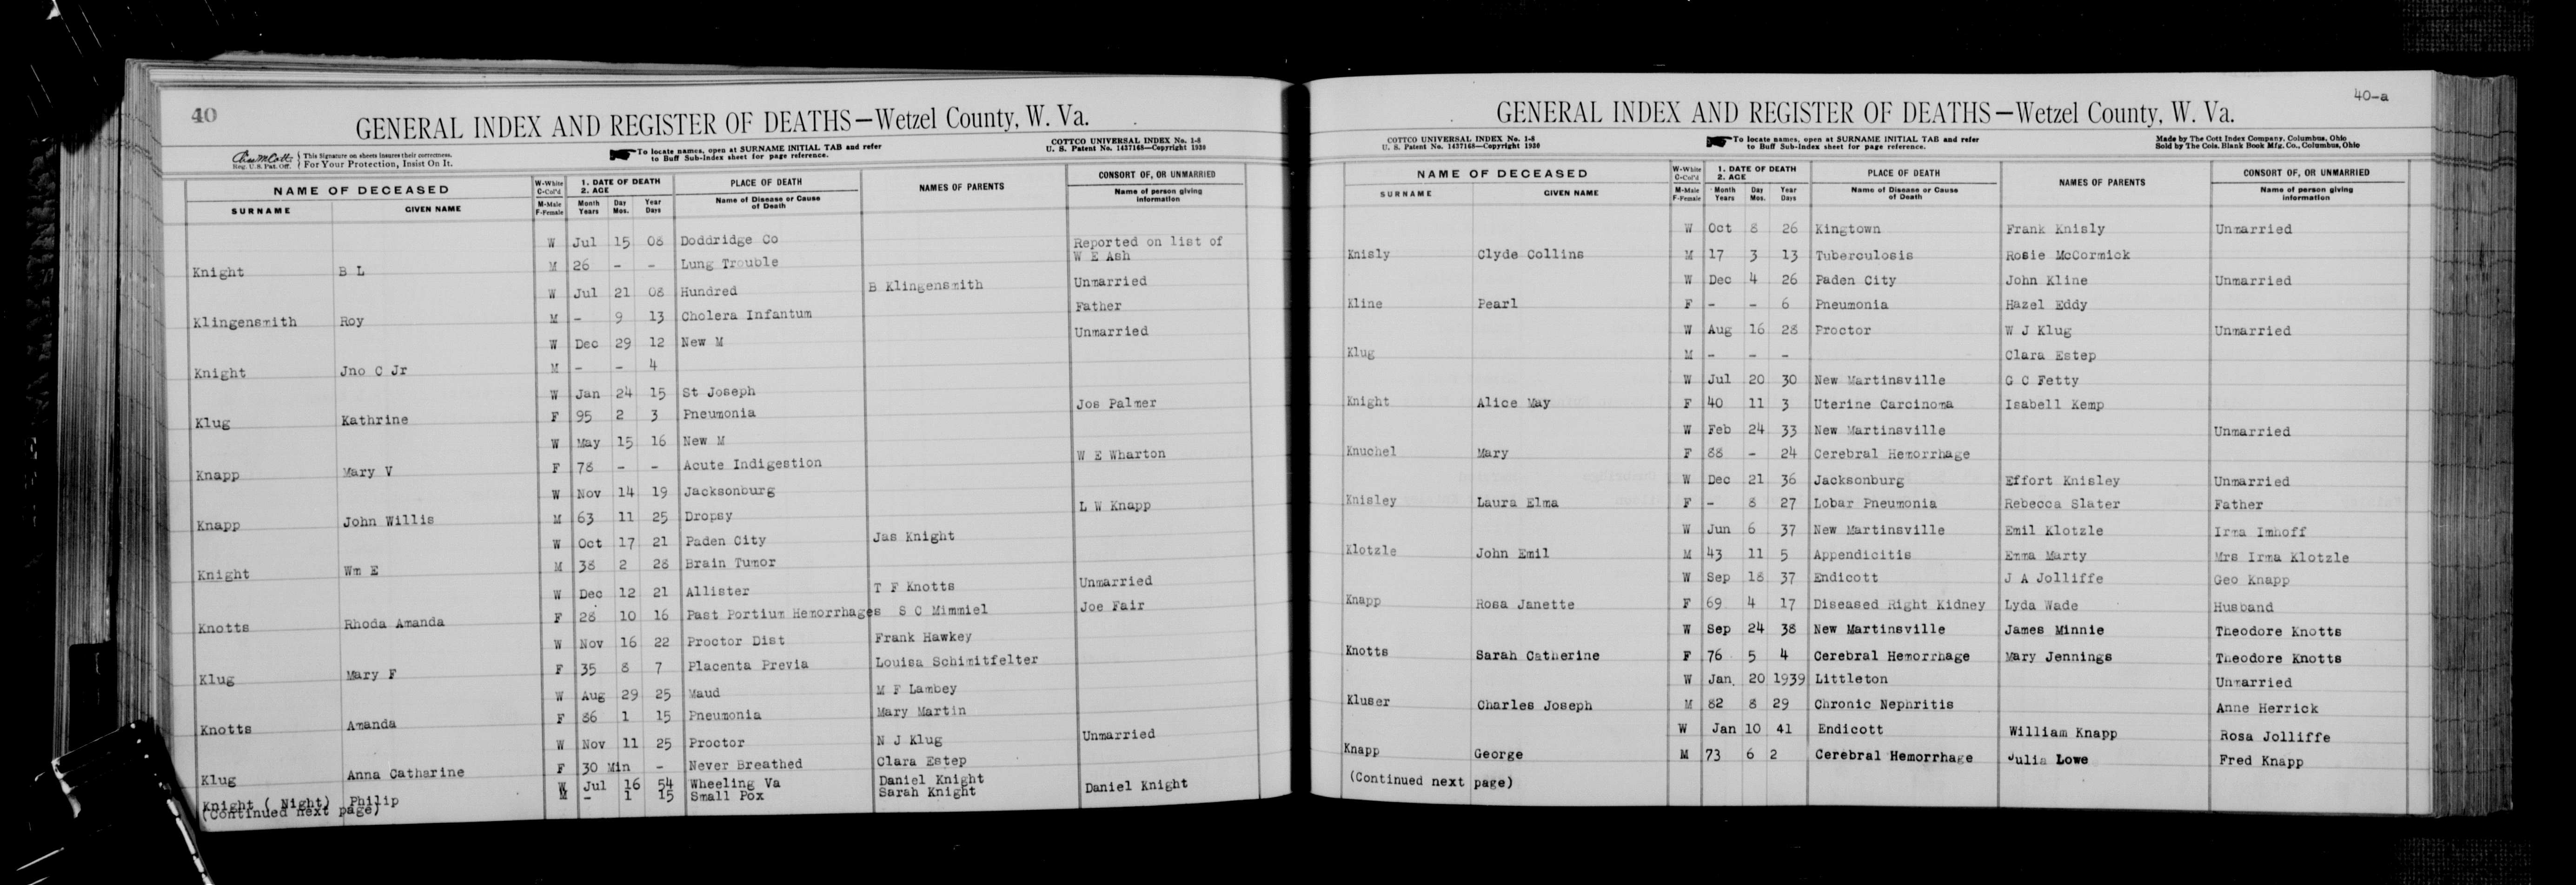 40
GENERAL INDEX AND REGISTER OF DEATHS—Wetzel County, W. Va.
Reg. U. S. Pat. Off. This Signature on sheets insures their correctness. For Your Protection, Insist On It.
To locate names, open at SURNAME INITIAL TAB and refer to Buff Sub-Index sheet for page reference.
COTTCO UNIVERSAL INDEX No. 1-8
U. S. Patent No. 1437168—Copyright 1930
NAME OF DECEASED W-White C-Col'd 1. DATE OF DEATH 2. AGE PLACE OF DEATH NAMES OF PARENTS CONSORT OF, OR UNMARRIED
SURNAME GIVEN NAME M-Male F-Female Month Years Day Mos. Year Days Name of Disease or Cause of Death Name of person giving information
W Jul 15 08 Doddridge Co Reported on list of
Knight B L M 26 - - Lung Trouble W E Ash
W Jul 21 08 Hundred B Klingensmith Unmarried
Klingensmith Roy M - 9 13 Cholera Infantum Father
W Dec 29 12 New M Unmarried
Knight Jno C Jr M - - 4
W Jan 24 15 St Joseph
Klug Kathrine F 95 2 3 Pneumonia Jos Palmer
W May 15 16 New M
Knapp Mary V F 78 - - Acute Indigestion W E Wharton
W Nov 14 19 Jacksonburg
Knapp John Willis M 63 11 25 Dropsy L W Knapp
W Oct 17 21 Paden City Jas Knight
Knight Wm E M 38 2 28 Brain Tumor
W Dec 12 21 Allister T F Knotts Unmarried
Knotts Rhoda Amanda F 28 10 16 Past Portium Hemorrhages S C Mimmiel Joe Fair
W Nov 16 22 Proctor Dist Frank Hawkey
Klug Mary F F 35 8 7 Placenta Previa Louisa Schimitfelter
W Aug 29 25 Maud M F Lambey
Knotts Amanda F 86 1 15 Pneumonia Mary Martin
W Nov 11 25 Proctor N J Klug Unmarried
Klug Anna Catharine F 30 Min - Never Breathed Clara Estep
W Jul 16 54 Wheeling Va Daniel Knight
Knight ( Night) Philip M - 1 15 Small Pox Sarah Knight Daniel Knight
(Continued next page)
40-a
GENERAL INDEX AND REGISTER OF DEATHS—Wetzel County, W. Va.
COTTCO UNIVERSAL INDEX No. 1-8
U. S. Patent No. 1437168—Copyright 1930
To locate names, open at SURNAME INITIAL TAB and refer to Buff Sub-Index sheet for page reference.
Made by The Cott Index Company, Columbus, Ohio
Sold by The Cols. Blank Book Mfg. Co., Columbus, Ohio
NAME OF DECEASED W-White C-Col'd 1. DATE OF DEATH 2. AGE PLACE OF DEATH NAMES OF PARENTS CONSORT OF, OR UNMARRIED
SURNAME GIVEN NAME M-Male F-Female Month Years Day Mos. Year Days Name of Disease or Cause of Death Name of person giving information
W Oct 8 26 Kingtown Frank Knisly Unmarried
Knisly Clyde Collins M 17 3 13 Tuberculosis Rosie McCormick
W Dec 4 26 Paden City John Kline Unmarried
Kline Pearl F - - 6 Pneumonia Hazel Eddy
W Aug 16 28 Proctor W J Klug Unmarried
Klug M - - - Clara Estep
W Jul 20 30 New Martinsville G C Fetty
Knight Alice May F 40 11 3 Uterine Carcinoma Isabell Kemp
W Feb 24 33 New Martinsville Unmarried
Knuchel Mary F 88 - 24 Cerebral Hemorrhage
W Dec 21 36 Jacksonburg Effort Knisley Unmarried
Knisley Laura Elma F - 8 27 Lobar Pneumonia Rebecca Slater Father
W Jun 6 37 New Martinsville Emil Klotzle Irma Imhoff
Klotzle John Emil M 43 11 5 Appendicitis Emma Marty Mrs Irma Klotzle
W Sep 18 37 Endicott J A Jolliffe Geo Knapp
Knapp Rosa Janette F 69 4 17 Diseased Right Kidney Lyda Wade Husband
W Sep 24 38 New Martinsville James Minnie Theodore Knotts
Knotts Sarah Catherine F 76 5 4 Cerebral Hemorrhage Mary Jennings Theodore Knotts
W Jan. 20 1939 Littleton Unmarried
Kluser Charles Joseph M 82 8 29 Chronic Nephritis Anne Herrick
W Jan 10 41 Endicott William Knapp Rosa Jolliffe
Knapp George M 73 6 2 Cerebral Hemorrhage Julia Lowe Fred Knapp
(Continued next page)